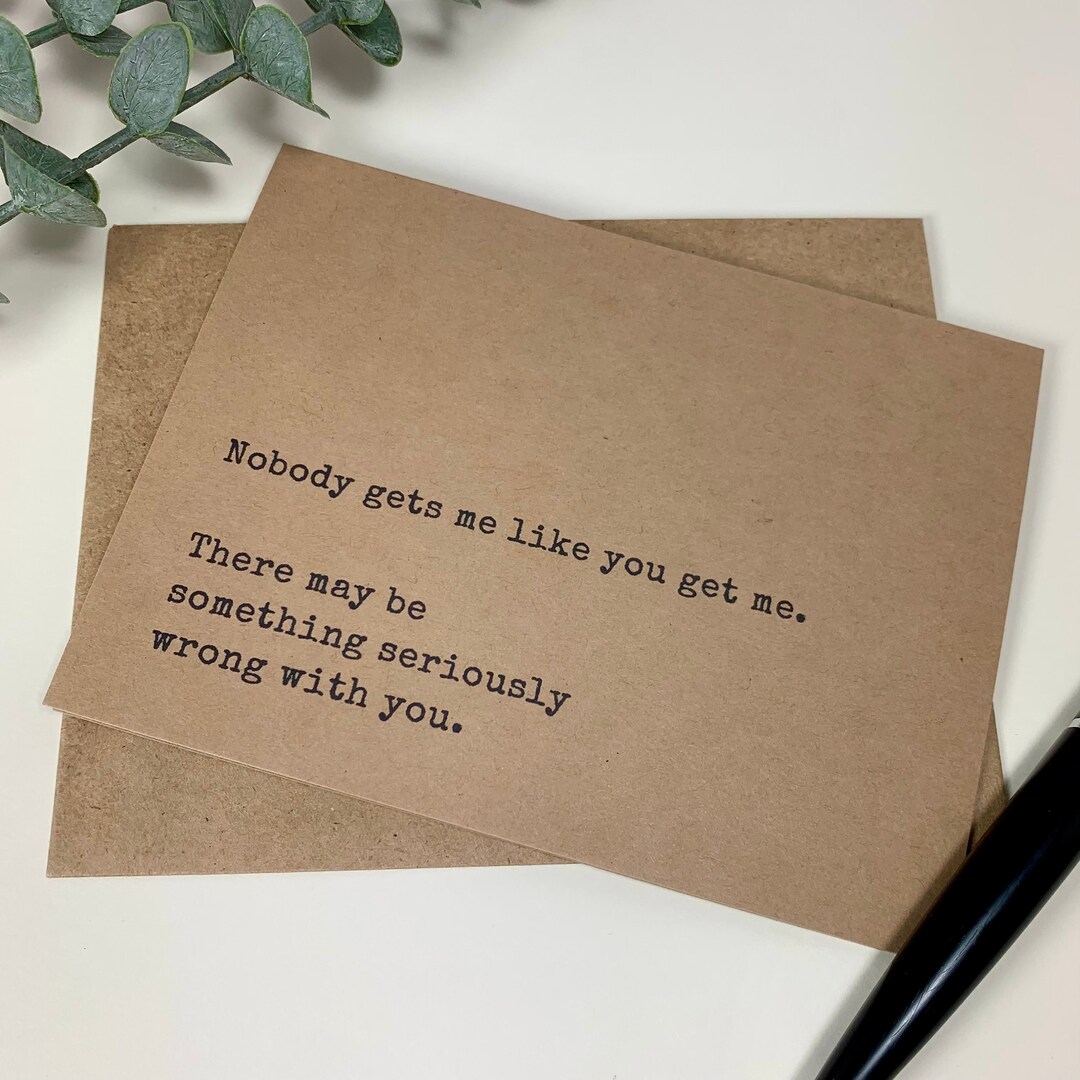 Nobody gets me like you get me.
There may be
something seriously
wrong with you.